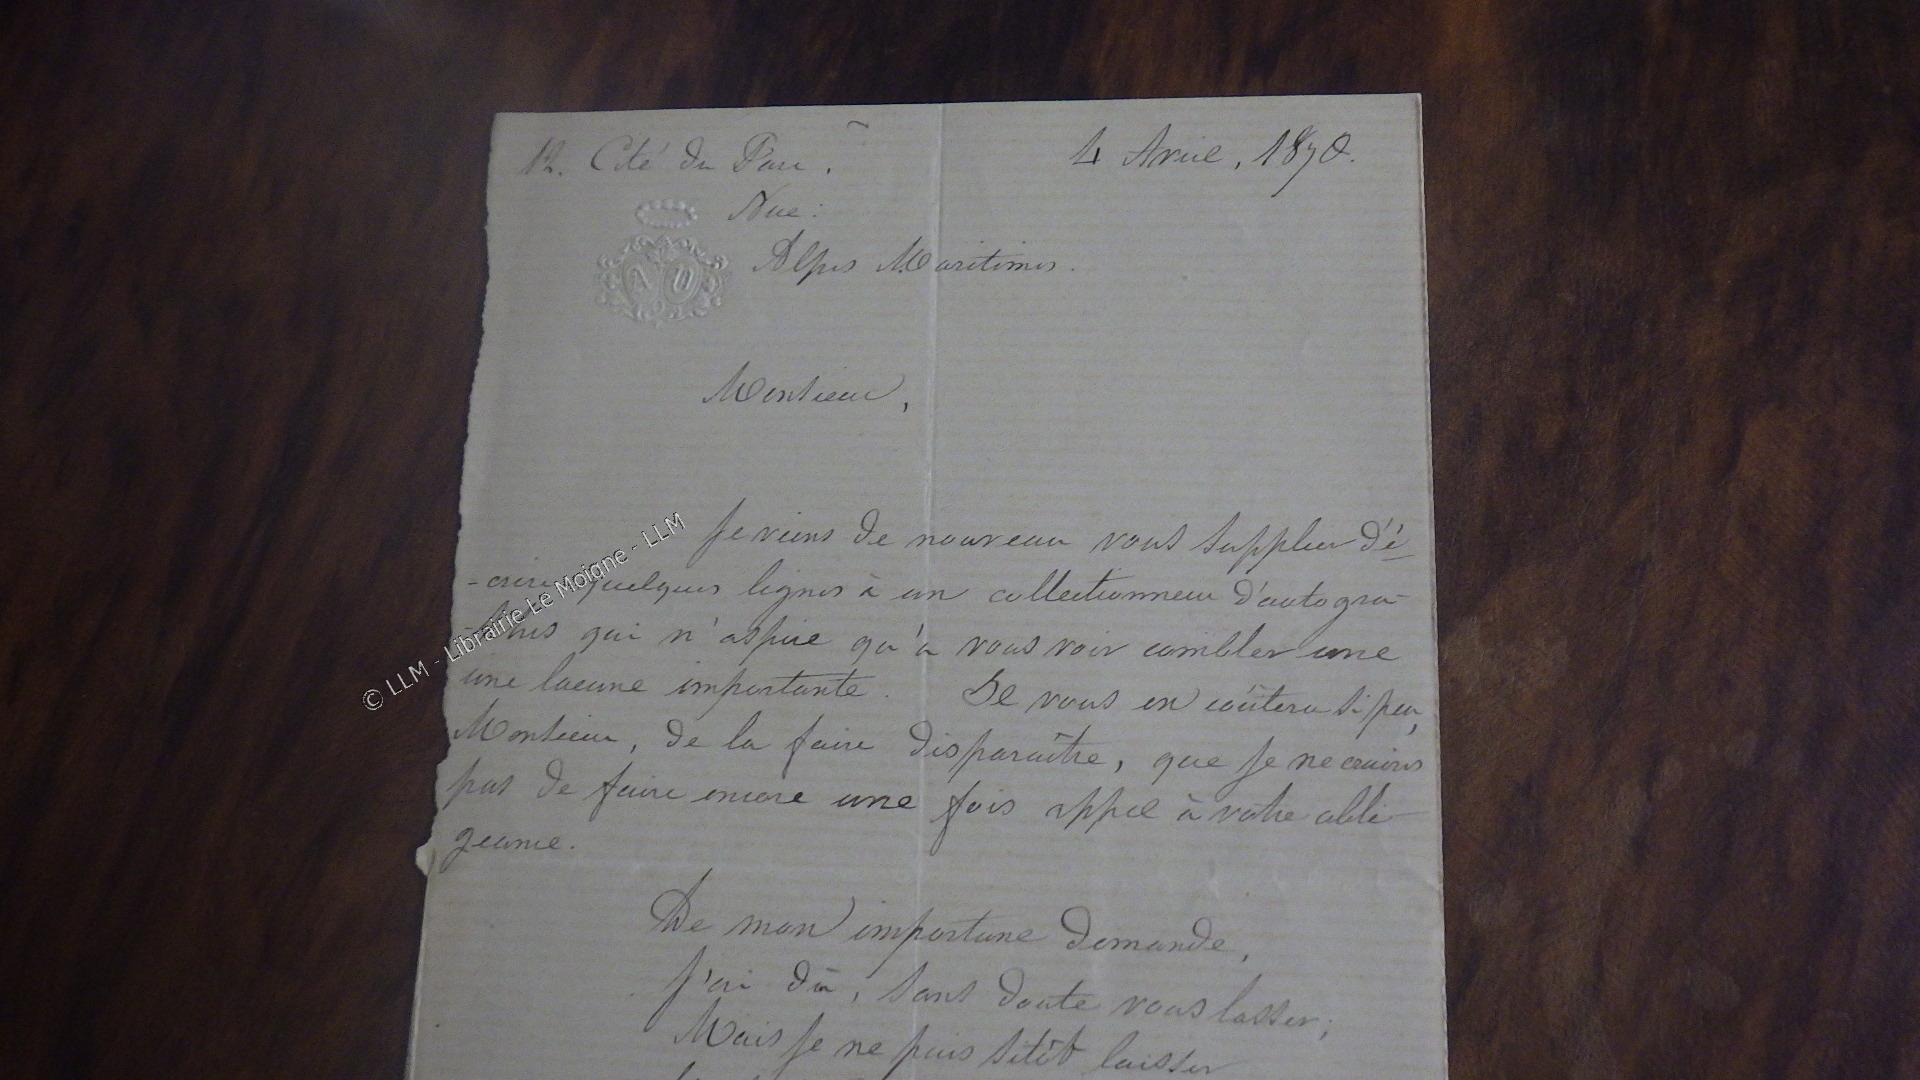 12. Cité du Parc.
4 Avril, 1870.
Nice:
Alpes Maritimes.
A U
Monsieur,
Je viens de nouveau vous supplier d'é-
-crire quelques lignes à un collectionneur d'autogra-
-phes qui n'aspire qu'à vous voir combler une
une lacune importante. Il vous en coûtera si peu,
Monsieur, de la faire disparaître, que je ne crains
pas de faire encore une fois appel à votre obli-
geance.
De mon importune demande,
J'ai dû, sans doute vous lasser;
Mais je ne puis sitôt laisser
© LLM - Librairie Le Moigne - LLM